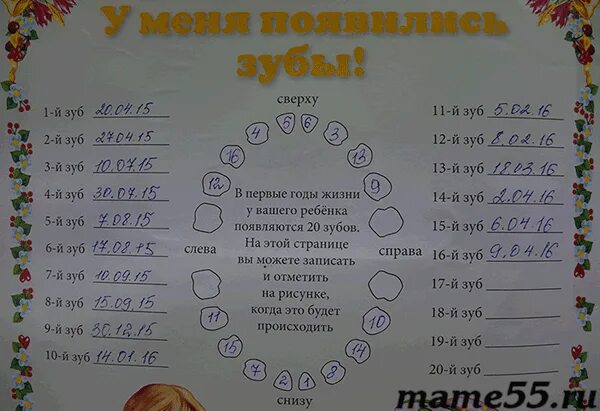 У меня появились
зубы!
сверху
1-й зуб 20.04.15
2-й зуб 27.04.15
3-й зуб 10.07.15
4-й зуб 30.07.15
5-й зуб 7.08.15
6-й зуб 17.08.15
7-й зуб 10.09.15
8-й зуб 15.09.15
9-й зуб 30.12.15
10-й зуб 14.01.16
4 5 6 3
16 13
12 9
В первые годы жизни
у вашего ребёнка
появляются 20 зубов.
На этой странице
вы можете записать
и отметить
на рисунке,
когда это будет
происходить
слева
справа
11 10
15 14
7 2 1 8
снизу
11-й зуб 5.02.16
12-й зуб 8.02.16
13-й зуб 18.03.16
14-й зуб 2.04.16
15-й зуб 6.04.16
16-й зуб 9.04.16
17-й зуб
18-й зуб
19-й зуб
20-й зуб
mame55.ru